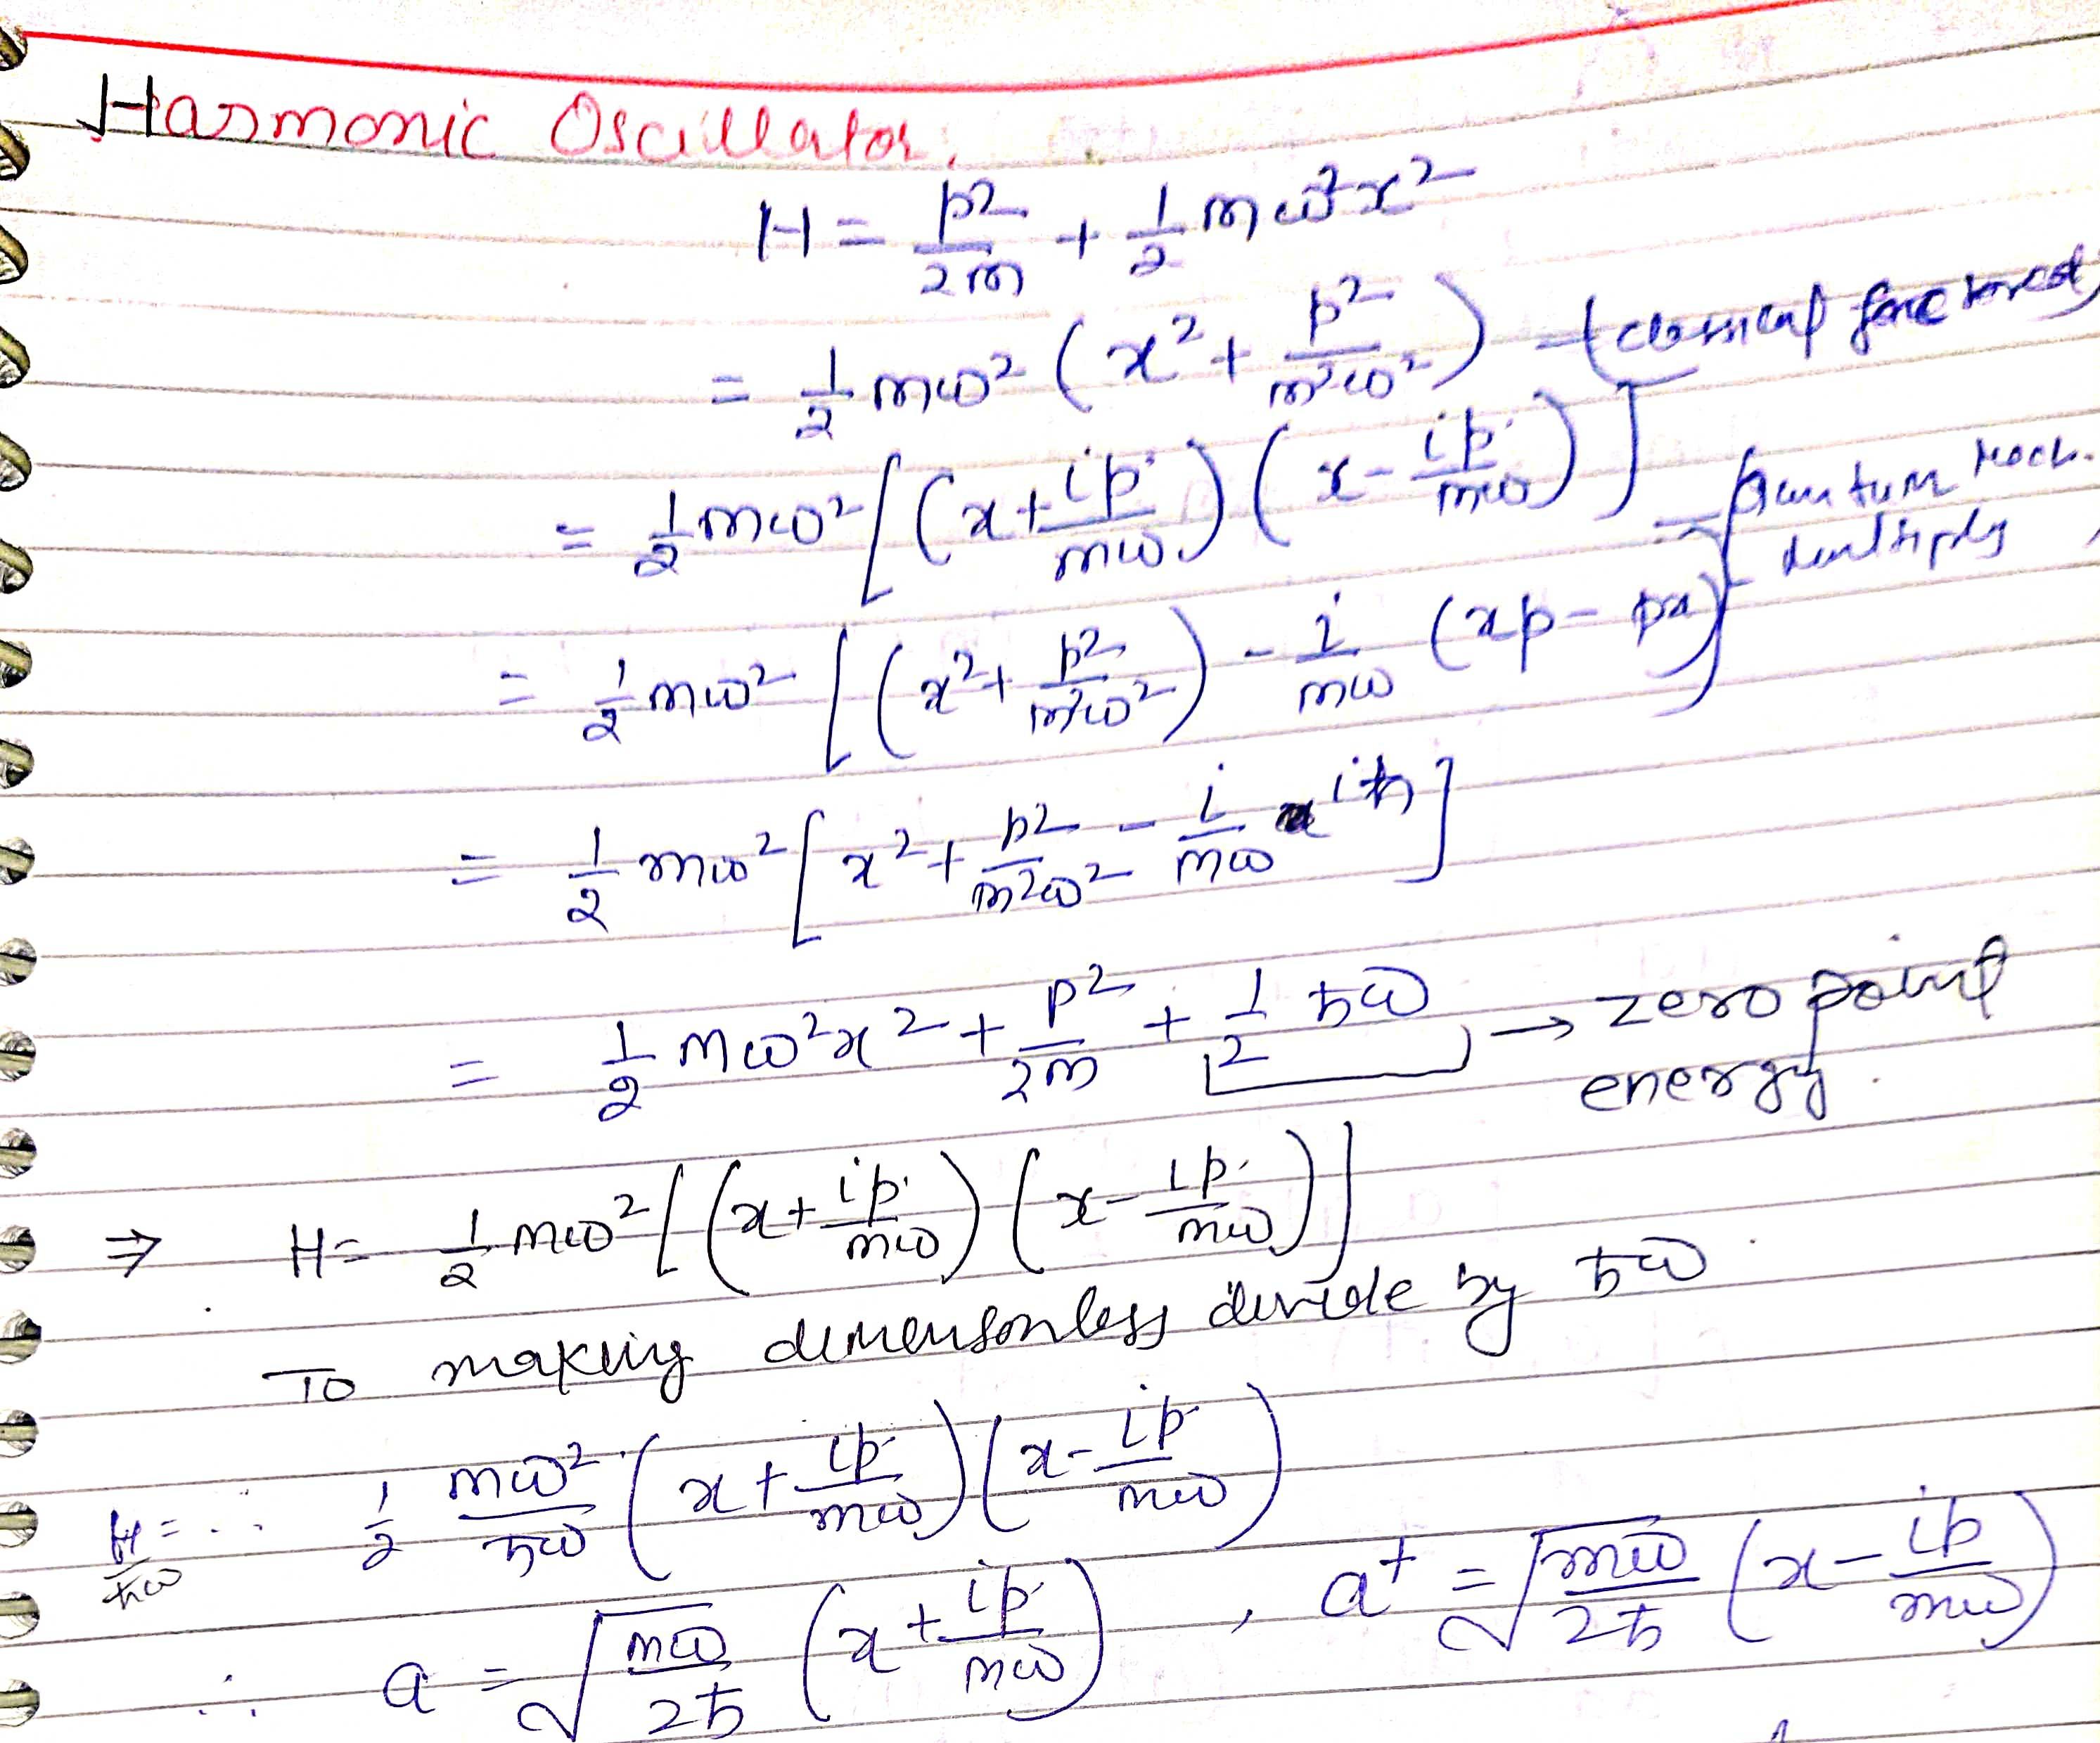 Harmonic Oscillator.
H = p²/2m + 1/2 mω²x²
= 1/2 mω² (x² + p²/m²ω²) - (classical
= 1/2 mω² [(x + ip/mω) (x - ip/mω)]
Quantum Mech. multiply
= 1/2 mω² [(x² + p²/m²ω²) - i/mω (xp - px)]
= 1/2 mω² [x² + p²/m²ω² - i/mω iħ]
= 1/2 mω²x² + p²/2m + 1/2 ħω → zero point
energy.
⇒ H = 1/2 mω² [(x + ip/mω) (x - ip/mω)]
To making dimensonless devide by ħω
H/ħω = ∴ 1/2 mω²/ħω (x + ip/mω) (x - ip/mω)
∴ a = √(mω/2ħ) (x + ip/mω) , a† = √(mω/2ħ) (x - ip/mω)